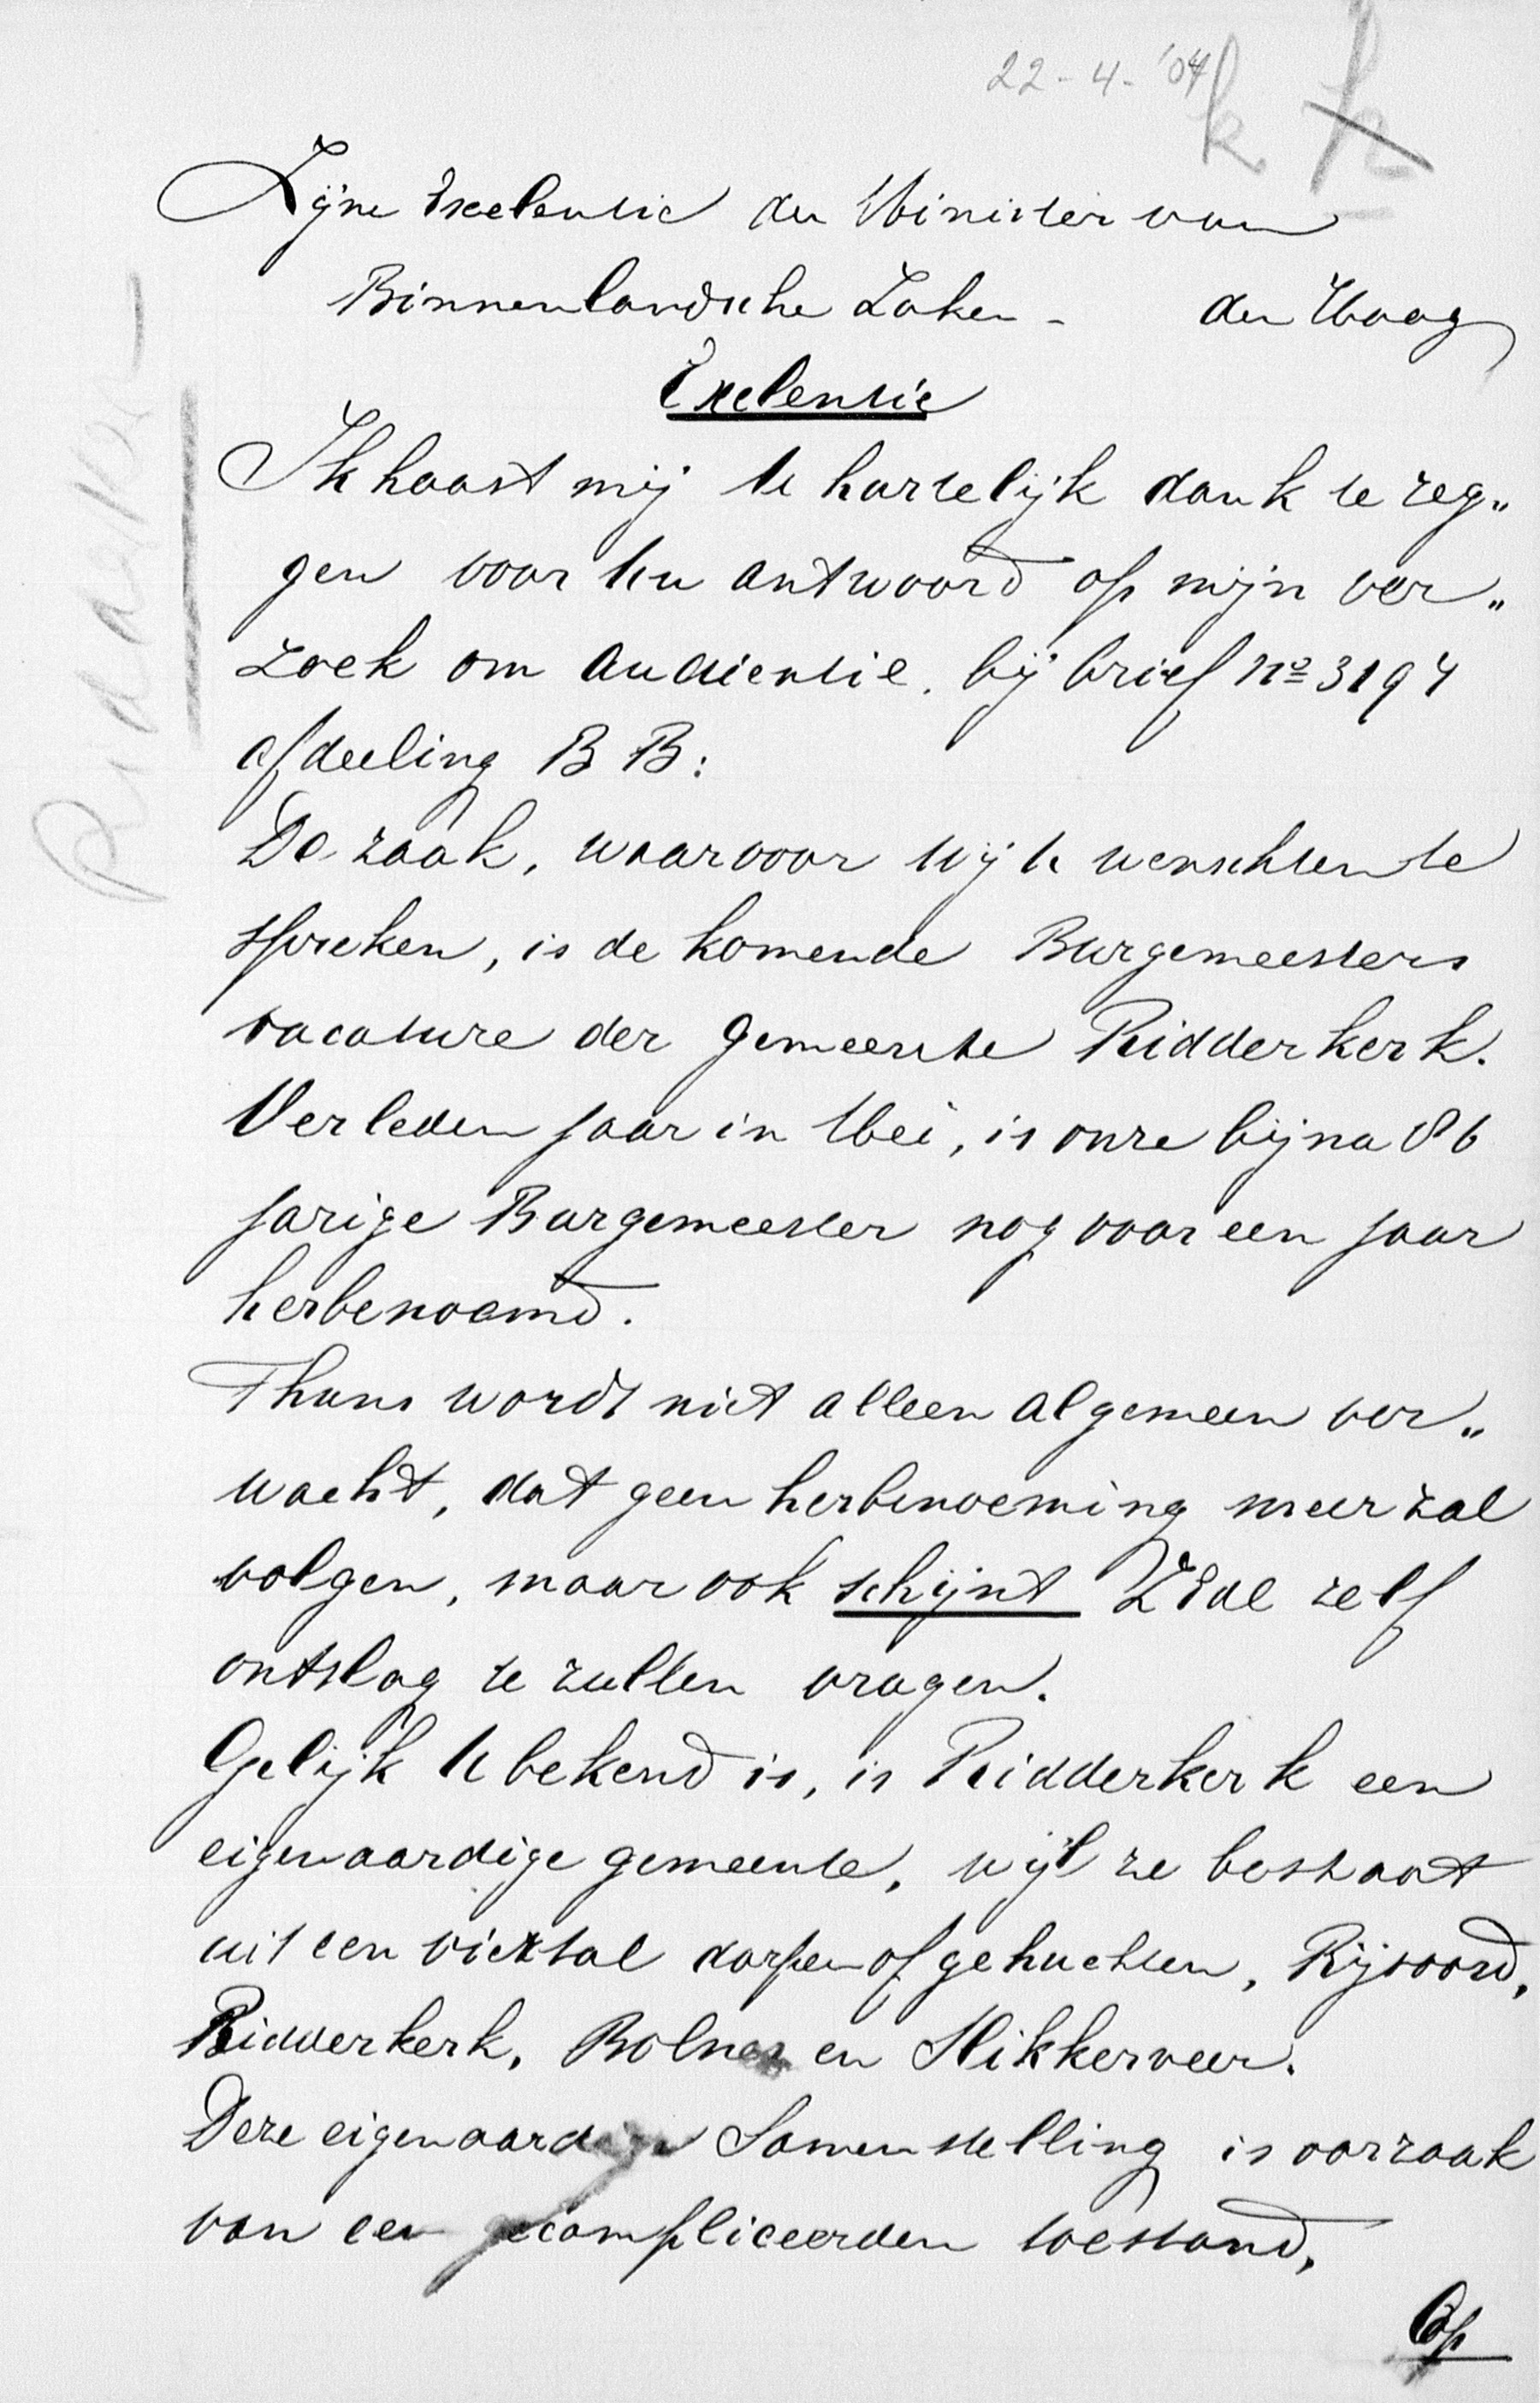 22-4-'04
k k
Zijne Excelentie den Minister van
Binnenlandsche Zaken - den Haag
Exelentie
Ik haast mij U hartelijk dank te zeg„
gen voor Uw antwoord op mijn ver„
zoek om audientie. bij brief No 3194
afdeeling B B:
De zaak, waarvoor wij U wenschten te
spreken, is de komende Burgemeesters
vacature der Gemeente Ridderkerk.
Verleden jaar in Mei, is onze bijna 86
jarige Burgemeester nog voor een jaar
herbenoemd.
Thans wordt niet alleen algemeen ver„
wacht, dat geen herbenoeming meer zal
volgen, maar ook schijnt ZEdl zelf
ontslag te zullen vragen.
Gelijk U bekend is, is Ridderkerk een
eigenaardige gemeente, wijl ze bestaat
uit een viertal dorpen of gehuchten, Rijsoord,
Ridderkerk, Bolnes en Slikkerveer.
Deze eigenaardige Samenstelling is oorzaak
van een gecompliceerden toestand,
Op